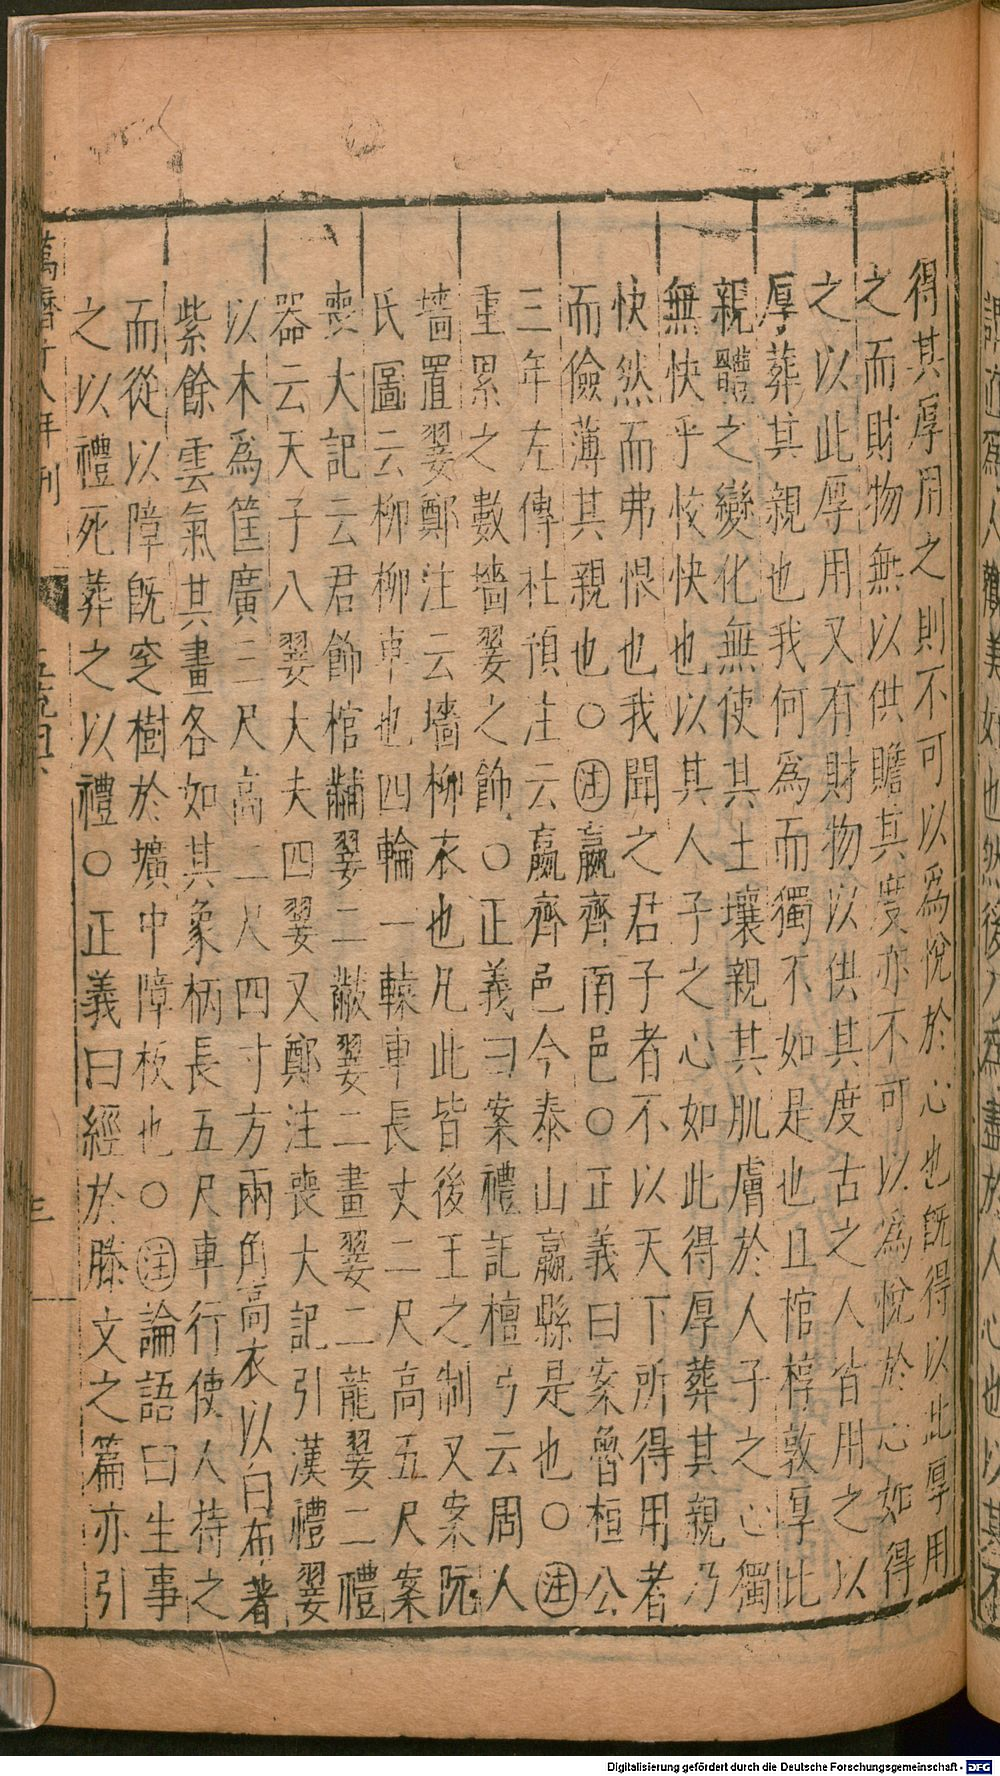 得其厚用之則不可以爲悅於心也旣得以此厚用
之而財物無以供贍其度亦不可以爲悅於心如得
之以此厚用又有財物以供其度古之人皆用之以
厚葬其親也我何爲而獨不如是也且棺椁敦厚比
親體之變化無使其土壤親其肌膚於人子之心獨
無快乎恔快也以其人子之心如此得厚葬其親乃
快然而弗恨也我聞之君子者不以天下所得用者
而儉薄其親也○注嬴齊南邑○正義曰案魯桓公
三年左傳杜預注云嬴齊邑今泰山嬴縣是也○注
重累之數墻翣之飾○正義曰案禮記檀弓云周人
墻置翣鄭注云墻柳衣也凡此皆後王之制又案阮
氏圖云柳柳車也四輪一轅車長丈二尺高五尺案
喪大記云君飾棺黼翣二黻翣二畫翣二龍翣二禮
器云天子八翣大夫四翣又鄭注喪大記引漢禮翣
以木爲筐廣三尺高二尺四寸方兩角高衣以白布著
紫餘雲氣其畫各如其象柄長五尺車行使人持之
而從以障旣窆樹於壙中障板也○注論語曰生事
之以禮死葬之以禮○正義曰經於滕文之篇亦引
萬曆十八年刊
三
詔遊爲人
美好也然後
爲盡於人心也以其不
Digitalisierung gefördert durch die Deutsche Forschungsgemeinschaft - DFG